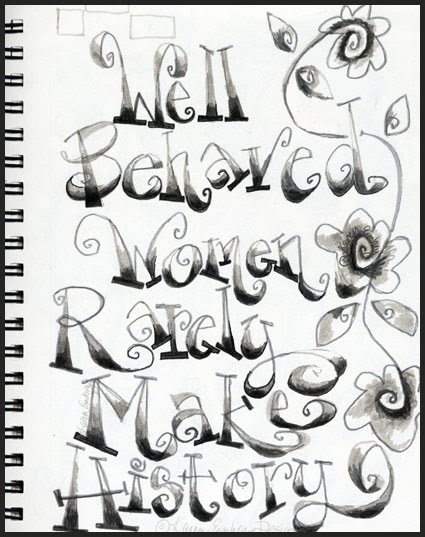 Well
Behaved
Women
Rarely
Make
History